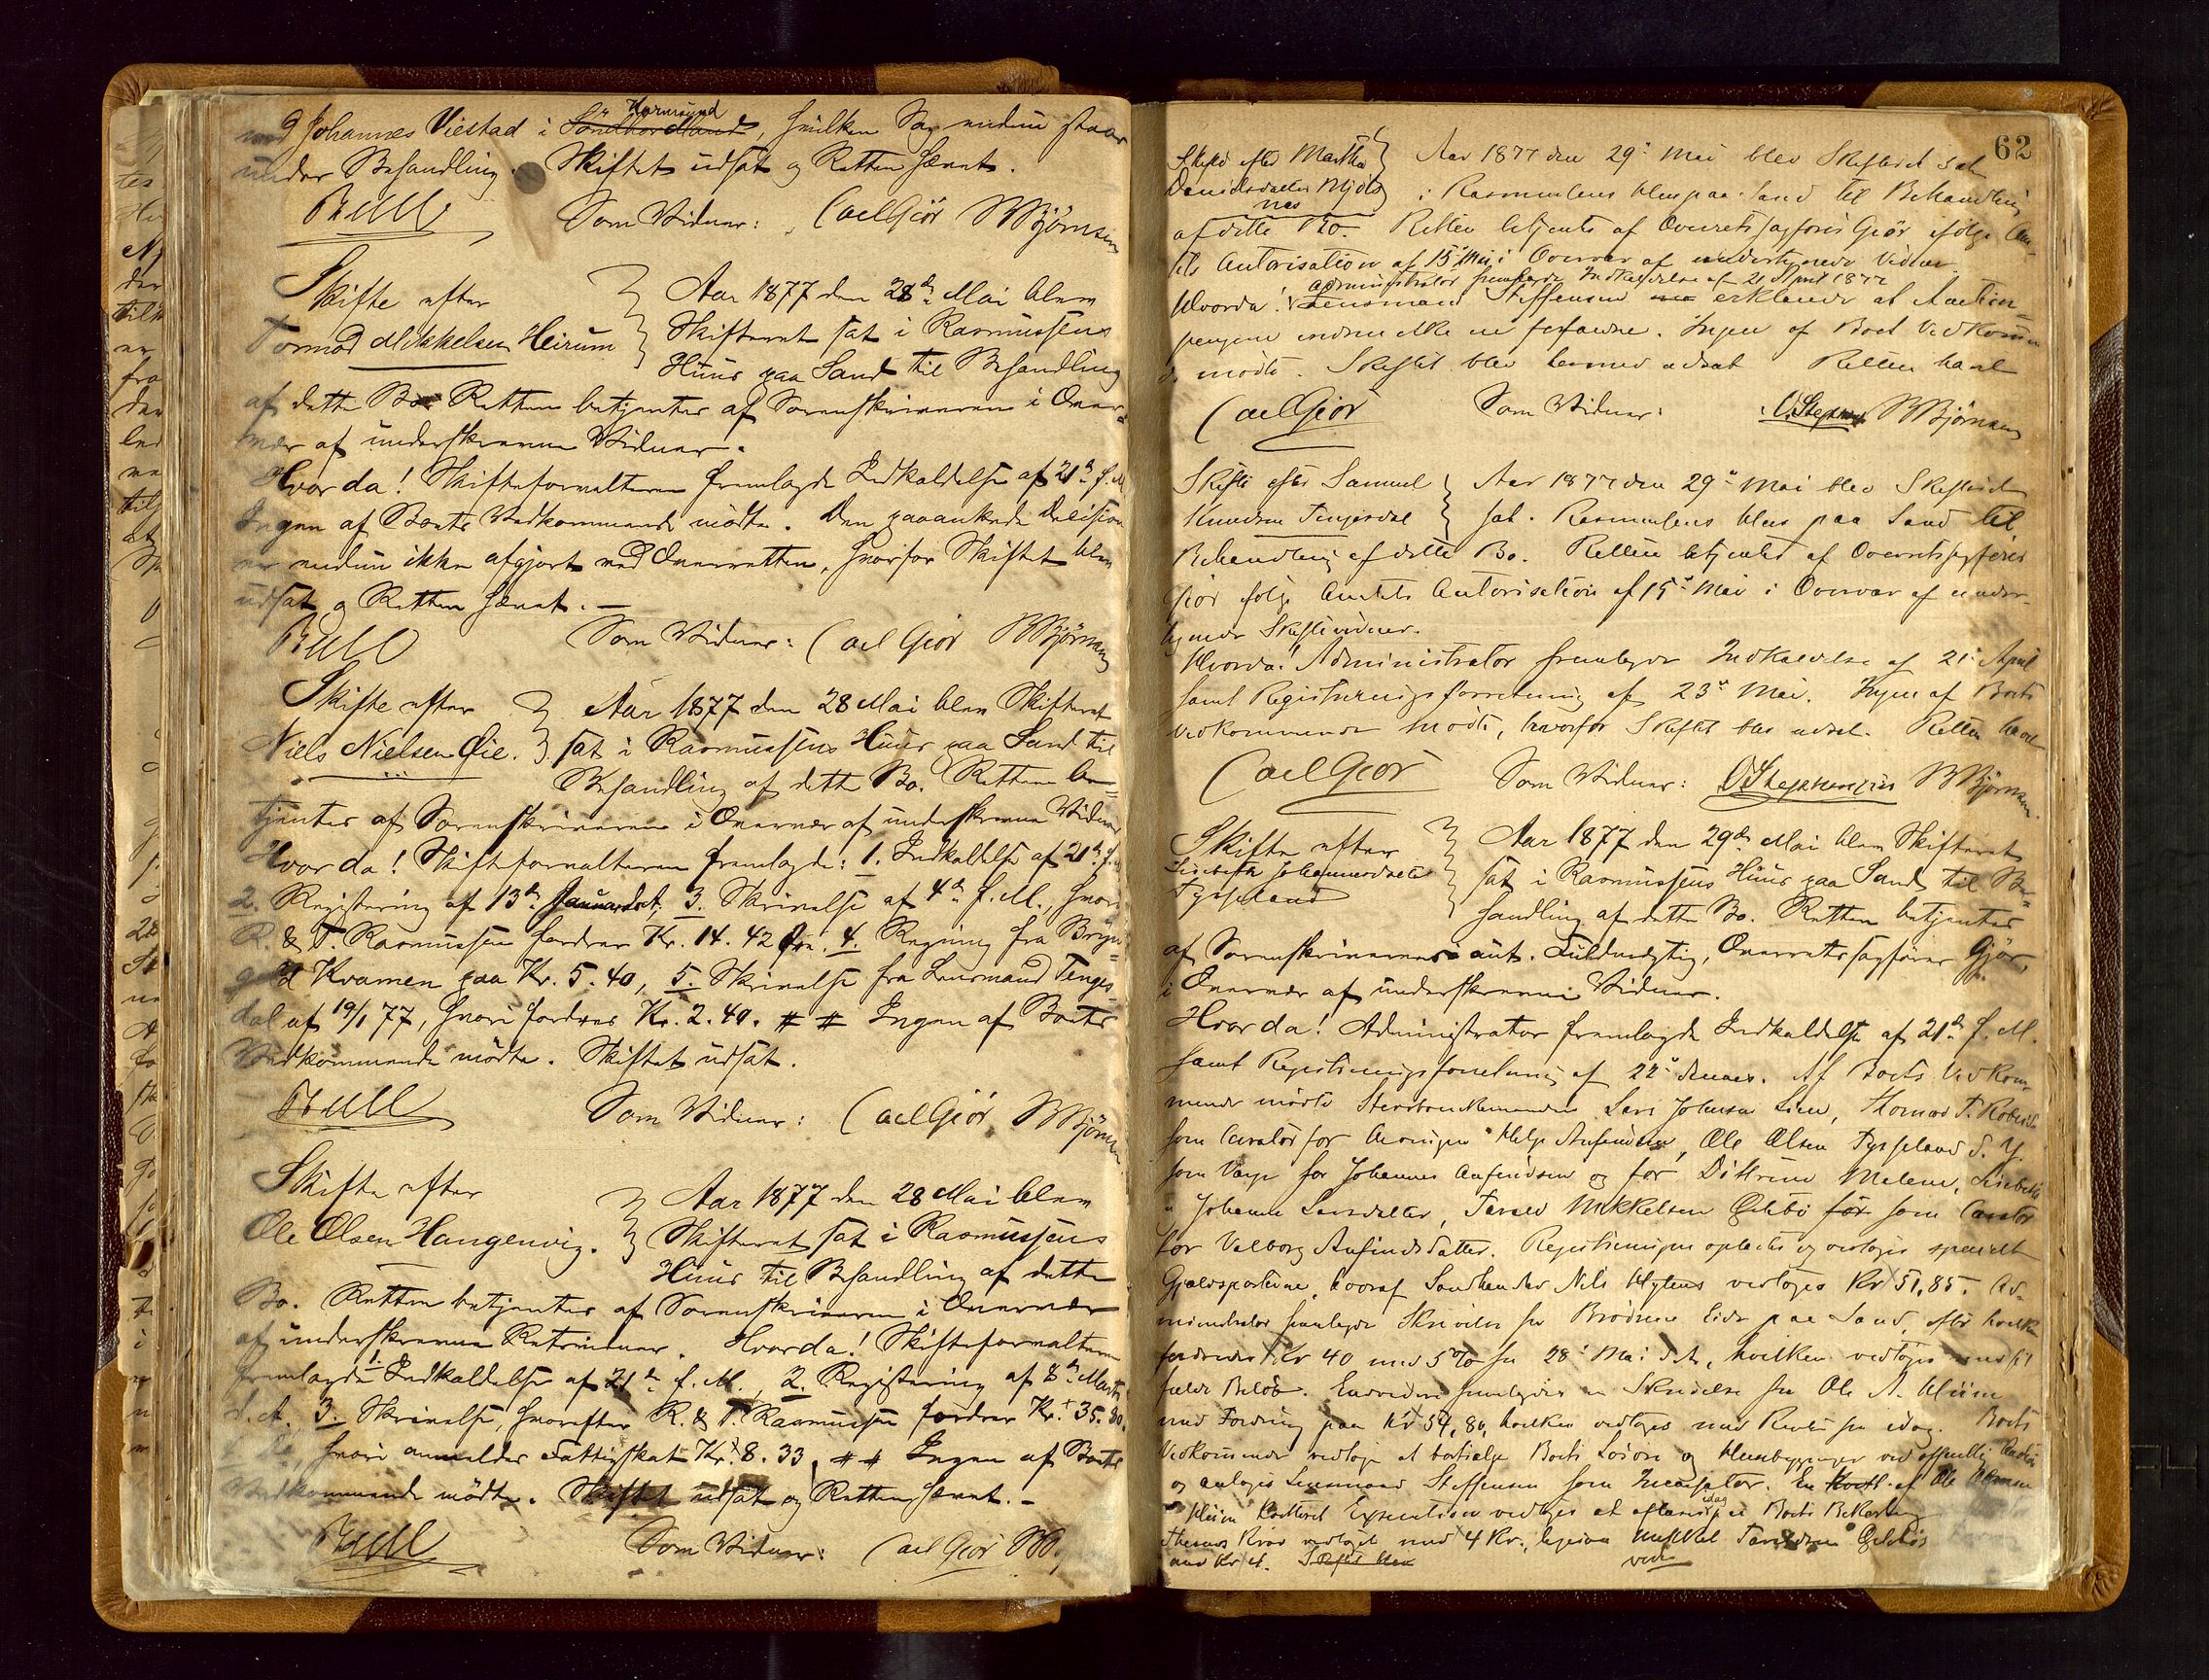 med Johannes Viestad i Söndhordland Karmsund, hvilken Sag endnu staar
under Behandling. Skiftet udsat og Retten hævet.
Bull Som Vidner: Carl Giør BBjörnsen
Skifte efter } Aar 1877 den 28de Mai blev
Tormod Mikkelsen Heirum } Skifteret sat i Rasmussens
Huus paa Sand til Behandling
af dette Bo. Retten betjentes af Sorenskriveren i Over-
vær af underskrevne Vidner.
Hvorda! Skifteforvalteren fremlagde Indkaldelse af 21de f. M.
Ingen af Boets Vedkommende mødte. Den paaankede Decision
er endnu ikke afgjort ved Overretten, hvorfor Skiftet blev
udsat og Retten hævet. —
Bull Som Vidner: Carl Giør BBjörnsen
Skifte efter } Aar 1877 den 28 Mai blev Skifteret
Niels Nielsen Øie. } sat i Rasmussens Huus paa Sand til
Behandling af dette Bo. Retten be-
tjentes af Sorenskriveren i Overvær af underskrevne Vidner
Hvor da! Skifteforvalteren fremlagde: 1. Indkaldelse af 21de f. M.
2. Registering af 13de Januar d. A. 3. Skrivelse af 4de f. M., hvori
R. & T. Rasmussen fordrer Kr. 14. 42 Øre. 4. Regning fra Bryn-
gel Kvamen paa Kr. 5. 40, 5. Skrivelse fra Lensmand Tenges-
dal af 19/1 77, hvori fordres Kr. 2. 40. # # Ingen af Boets
Vedkommende mødte. Skiftet udsat.
Bull Som Vidner: Carl Giør BBjörnsen
Skifte efter } Aar 1877 den 28 Mai blev
Ole Olsen Haugenvig. } Skifteret sat i Rasmussens
Huus til Behandling af dette
Bo. Retten betjentes af Sorenskriveren i Overvær
af underskrevne Retsvidner. Hvorda! Skifteforvalteren
fremlagde 1. Indkaldelse af 21de f. M., 2. Registering af 8de Marts
d. A. 3. Skrivelse, hvorefter R. & T. Rasmussen fordrer Kr. 35. 80.
hvori anmeldes Fattigskat Kr. 8. 33. # # Ingen af Boets
Vedkommende mødte. Skiftet udsat og Retten hævet. -
Bull Som Vidner: Carl Giør BB,
62
Skifte efter Martha } Aar 1877 den 29de Mai blev Skifteret sat
Davidsdatter Mjöls- } i Rasmussens Hus paa Sand til Behandling
nes
af dette Bo. Retten betjentes af Overretssagfører Giør ifølge Am-
tets Autorisation af 15de Mai i Overvær af undertegnede Vidner
Administrator fremlagde Indkaldelse af 21 April 1877
Hvorda! Lensmand Steffensen erklærede at Auctions-
pengene endnu ikke er forfaldne. Ingen af Boet Vedkommen-
de mødte. Skiftet blev hermed udsat Retten hævet
Carl Giør Som Vidner: O. Steffensen BBjörnsen
Skifte efter Samuel } Aar 1877 den 29de Mai blev Skifteret
Knudsen Tengesdal } sat i Rasmussens Hus paa Sand til
Behandling af dette Bo. Retten betjentes af Overretssagfører
Giør ifølge Amtets Autorisation af 15de Mai i Overvær af under-
tegnede Skiftevidner.
Hvorda! Administrator fremlagde Indkaldelse af 21 April
samt Registreringsforretning af 23de Mai. Ingen af Boets
Vedkommende mødte, hvorfor Skiftet blev udsat. Retten hævet
Carl Giør Som Vidner: O. Steffensen BBjörnsen
Skifte efter } Aar 1877 den 29de Mai blev Skifteret
Lisebeth Johannesdatter } sat i Rasmussens Huus paa Sand til Be-
Fysseland } handling af dette Bo. Retten betjentes
af Sorenskriverens aut. Fuldmægtig, Overretssagfører Gjør,
i Overvær af underskrevne Vidner.
Hvor da! Administrator fremlagde Indkaldelse af 21de f. M.
samt Registreringsforretning af 22de dennes. Af Boets Vedkom-
mende mødte Lars Johnsen Lien, Thomas T.
som Curator for Helge Anfindsen, Ole Olsen Fysseland d. Y.
som Værge for Johannes Anfindsen og for Malene, Lisebeth
Johanne Larsdatter, Mikkelsen for som Curator
for Valborg Anfindsdatter. Registreringen oplæstes og vedtoges specielt
Gjældsposterne, hvoraf Landhandler Nils vedtoges Kr 51,85. Ad-
ministrator fremlagde Skrivelse fra Brødrene Eide paa Sand, efter hvilken
fordredes Kr 40 med 5% fra 28de Mai d. A., hvilken vedtoges med sit
fulde Beløb. Endvidere fremlagdes en Skrivelse fra Ole A.
med Fordring paa Kr 54,80, hvilken vedtoges med Renter fra idag. Boets
Vedkommende vedtoge at bortsælge Boets Løsøre og Husebygninger ved offentlig Auction
og antoges Lensmand Steffensen som Incassator. En af Ole
Execution vedtoges at idag paa Boets Bekostning
Thomas vedtoges med 4 Kr.,
med Kr 4. Skiftet blev